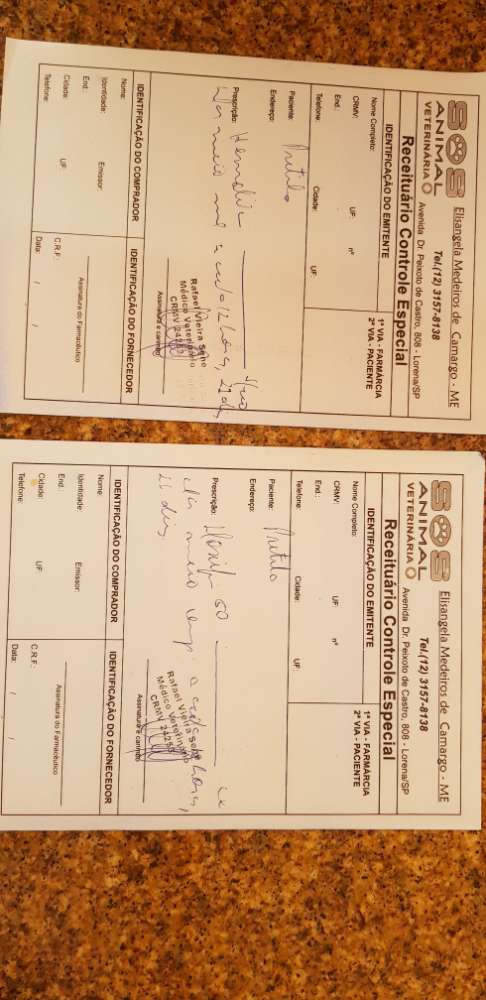 SOS
ANIMAL
VETERINÁRIA
Elisangela Medeiros de Camargo - ME
Tel.(12) 3157-8138
Avenida Dr. Peixoto de Castro, 808 - Lorena/SP
Receituário Controle Especial
IDENTIFICAÇÃO DO EMITENTE
Nome Completo:
CRMV: UF: nº
End.:
Telefone: Cidade: UF:
1ª VIA - FARMÁRCIA
2ª VIA - PACIENTE
Paciente: Pretilo
Endereço:
Prescrição:
12 horas, 21 dias
Rafael Vieira
Médico Veterinário
CRMV
Assinatura e carimbo
IDENTIFICAÇÃO DO COMPRADOR
Nome:
Identidade: Emissor:
End.:
Cidade: UF:
Telefone:
IDENTIFICAÇÃO DO FORNECEDOR
Assinatura do Farmacêutico
C.R.F.:
Data: / /
SOS
ANIMAL
VETERINÁRIA
Elisangela Medeiros de Camargo - ME
Tel.(12) 3157-8138
Avenida Dr. Peixoto de Castro, 808 - Lorena/SP
Receituário Controle Especial
IDENTIFICAÇÃO DO EMITENTE
Nome Completo:
CRMV: UF: nº
End.:
Telefone: Cidade: UF:
1ª VIA - FARMÁRCIA
2ª VIA - PACIENTE
Paciente: Pretilo
Endereço:
Prescrição: 50
meio comp. a cada horas,
21 dias
Rafael Vieira
Médico Veterinário
CRMV
Assinatura e carimbo
IDENTIFICAÇÃO DO COMPRADOR
Nome:
Identidade: Emissor:
End.:
Cidade: UF:
Telefone:
IDENTIFICAÇÃO DO FORNECEDOR
Assinatura do Farmacêutico
C.R.F.:
Data: / /